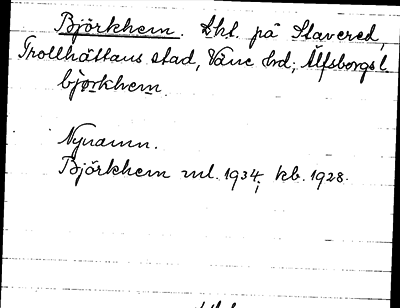 Björkhem. Lht. på Stavered,
Trollhättans stad, Väne hd; Älfsborgs l.
björkhem.
Nynamn.
Björkhem ml. 1934; kb. 1928.